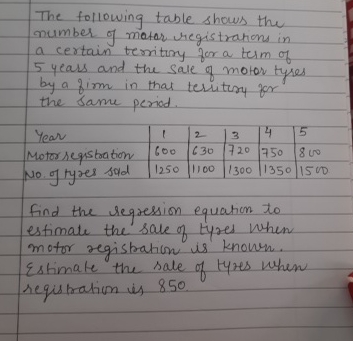 The following table shows the
number of motor registrations in
a certain territory for a term of
5 years and the sale of motor tyres
by a firm in that territory for
the same period.
Year 1 2 3 4 5
Motor registration 600 630 720 750 800
No. of tyres sold 1250 1100 1300 1350 1500
Find the regression equation to
estimate the sale of tyres when
motor registration is known.
Estimate the sale of tyres when
registration is 850